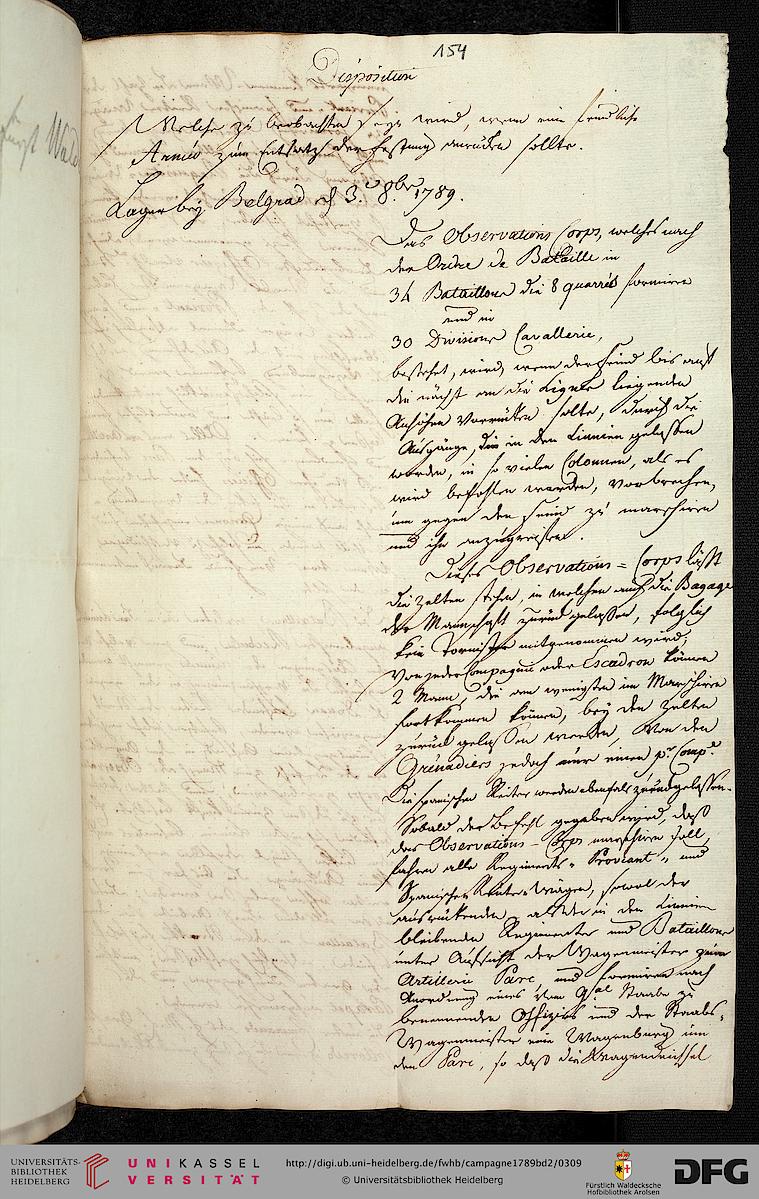 154
Disposition
Welche zu beobachten seyn wird, wenn eine feindliche
Armée zum Entsatz der Festung anrücken sollte.
Lager bey Belgrad d. 3.n 8br 1789.
Das Observations Corps, welches nach
der Ordre de Bataille in
34 Bataillons die 8 quarrés formiren
und in
30 Divisions Cavallerie,
bestehet, wird, wenn der Feind bis auf
die nächst an die Ligne liegenden
Anhöhen vorrücken sollte, durch die
Ausgänge, die in den Linien gelassen
worden, in so vielen Colonnen, als es
wird befohlen werden, vorbrechen,
um gegen den Feind zu marschiren
und ihn anzugreifen.
Dieses Observations-Corps läßt
die Zelten stehen, in welchen auch die Bagage
der Mannschaft zurückgelassen, folglich
kein Tornister mitgenommen wird,
Von jeder Compagnie oder Escadron können
2 Mann, die am wenigsten im Marschiren
fortkommen können, bey den Zelten
zurück gelassen werden, Von den
Grénadiers jedoch nur einen pr Comp.
Die spanischen Reiter werden ebenfals zurückgelassen.
Sobald der Befehl gegeben wird, daß
das Observations-Corps marschiren soll,
fahren alle Regiments-Proviant- und
Spanische Reuter-Wägen, sowol der
ausrückenden, als der in den Linien
bleibenden Regimenter und Bataillons
unter Aufsicht der Wagenmeister zum
Artillerie Parc, und formiren nach
Anordnung eines vom Gral Staabe zu
benennenden Offiziers und der Staabs-
Wagenmeister eine Wagenburg um
den Parc, so daß die Wagendeichsel
Wald
UNIVERSITÄTS-
BIBLIOTHEK
HEIDELBERG
UNIKASSEL
VERSITÄT
http://digi.ub.uni-heidelberg.de/fwhb/campagne1789bd2/0309
© Universitätsbibliothek Heidelberg
Fürstlich Waldecksche
Hofbibliothek Arolsen
DFG